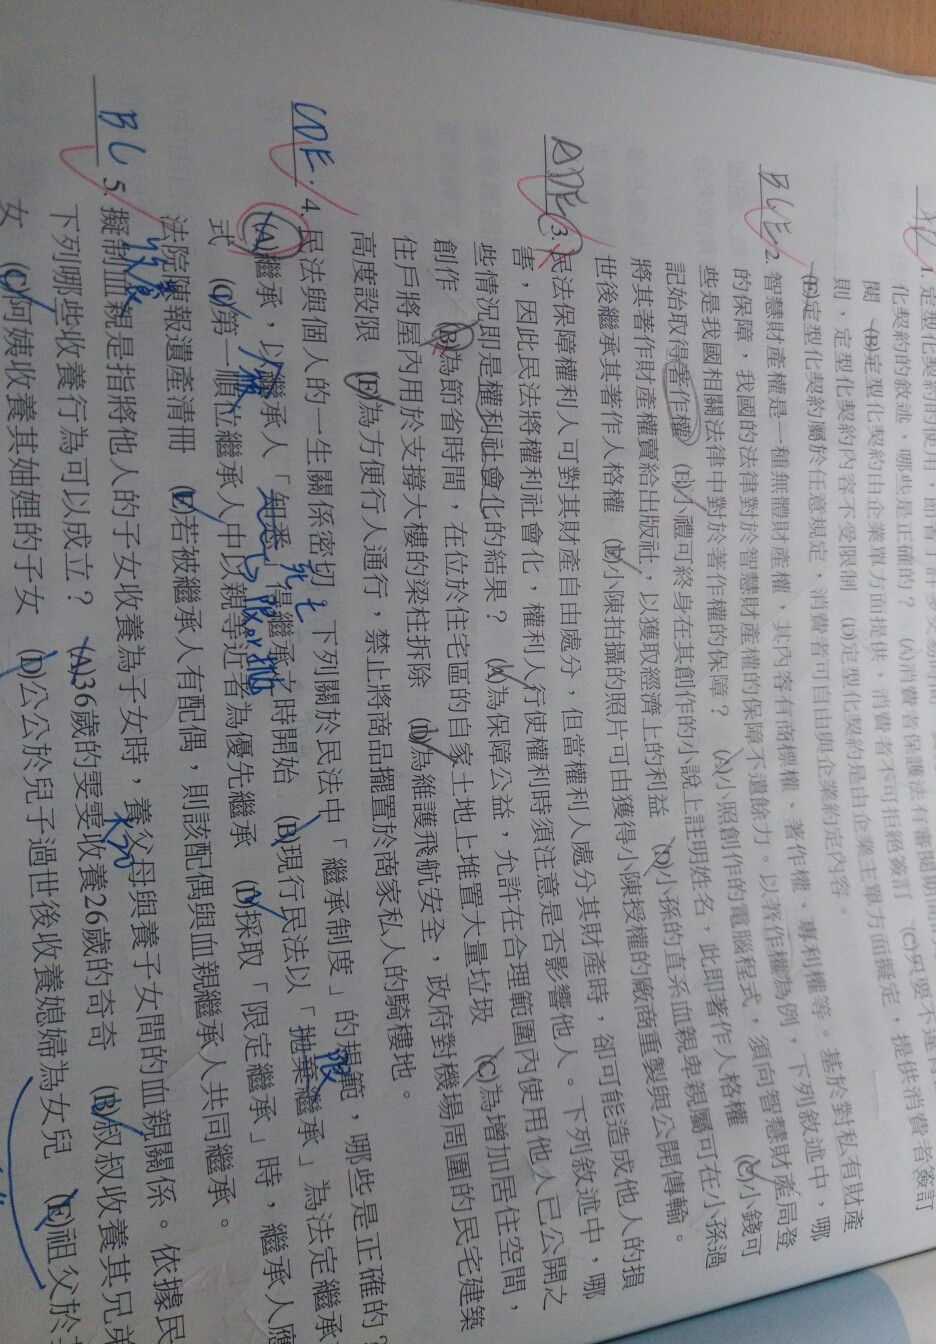 化契約的敘述，哪些是正確的？ (A)消費者保護法有審閱期間的
閱 (B)定型化契約由企業單方面提供，消費者不可拒絕簽訂 (C)只要不違
則，定型化契約內容不受限制 (D)定型化契約是由企業主單方面擬定，提供消費者簽訂
(E)定型化契約屬於任意規定，消費者可自由與企業約定內容。
BCE 2. 智慧財產權是一種無體財產權，其內容有商標權、著作權、專利權等。基於對私有財產
的保障，我國的法律對於智慧財產權的保障不遺餘力。以著作權為例，下列敘述中，哪
些是我國相關法律中對於著作權的保障？ (A)小照創作的電腦程式，須向智慧財產局登
記始取得著作權 (B)小禮可終身在其創作的小說上註明姓名，此即著作人格權 (C)小錢可
將其著作財產權賣給出版社，以獲取經濟上的利益 (D)小孫的直系血親卑親屬可在小孫過
世後繼承其著作人格權 (E)小陳拍攝的照片可由獲得小陳授權的廠商重製與公開傳輸。
ADE 3. 民法保障權利人可對其財產自由處分，但當權利人處分其財產時，卻可能造成他人的損
害，因此民法將權利社會化，權利人行使權利時須注意是否影響他人。下列敘述中，哪
些情況即是權利社會化的結果？ (A)為保障公益，允許在合理範圍內使用他人已公開之
創作 (B)為節省時間，在位於住宅區的自家土地上堆置大量垃圾 (C)為增加居住空間，
住戶將屋內用於支撐大樓的梁柱拆除 (D)為維護飛航安全，政府對機場周圍的民宅建築
高度設限 (E)為方便行人通行，禁止將商品擺置於商家私人的騎樓地。
CDE 4. 民法與個人的一生關係密切，下列關於民法中「繼承制度」的規範，哪些是正確的？
(A)繼承，以繼承人「知悉」得繼承之時開始 (B)現行民法以「拋棄繼承」為法定繼承
被 死亡 限
式 (C)第一順位繼承人中以親等近者為優先繼承 (D)採取「限定繼承」時，繼承人應
法院陳報遺產清冊 (E)若被繼承人有配偶，則該配偶與血親繼承人共同繼承。
收養
BC 5. 擬制血親是指將他人的子女收養為子女時，養父母與養子女間的血親關係。依據民
下列哪些收養行為可以成立？ (A)36歲的雯雯收養26歲的奇奇 (B)叔叔收養其兄弟
女 (C)阿姨收養其妯娌的子女 (D)公公於兒子過世後收養媳婦為女兒 (E)祖父於